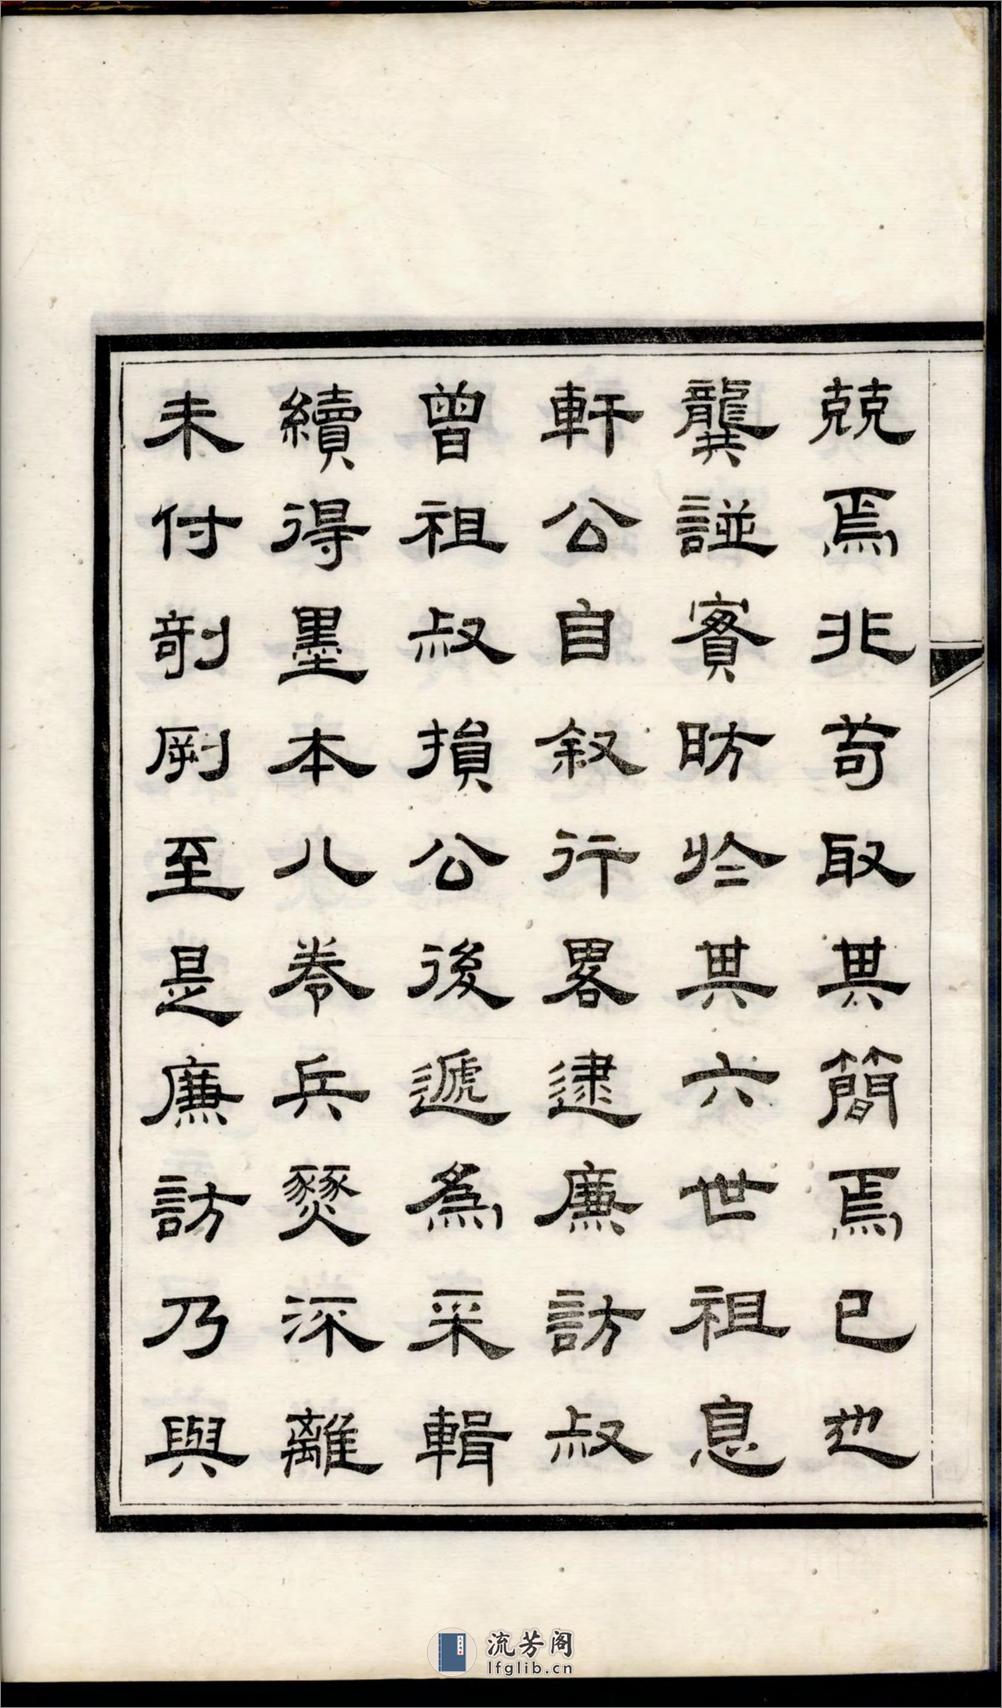 兢焉非苟取其簡焉已也
龔諩賓昉於其六世祖息
軒公自叙行畧逮廉訪叔
曾祖叔損公後遞爲采輯
續得墨本八卷兵燹深離
未付剞劂至是廉訪乃與
流芳阁
lfglib.cn